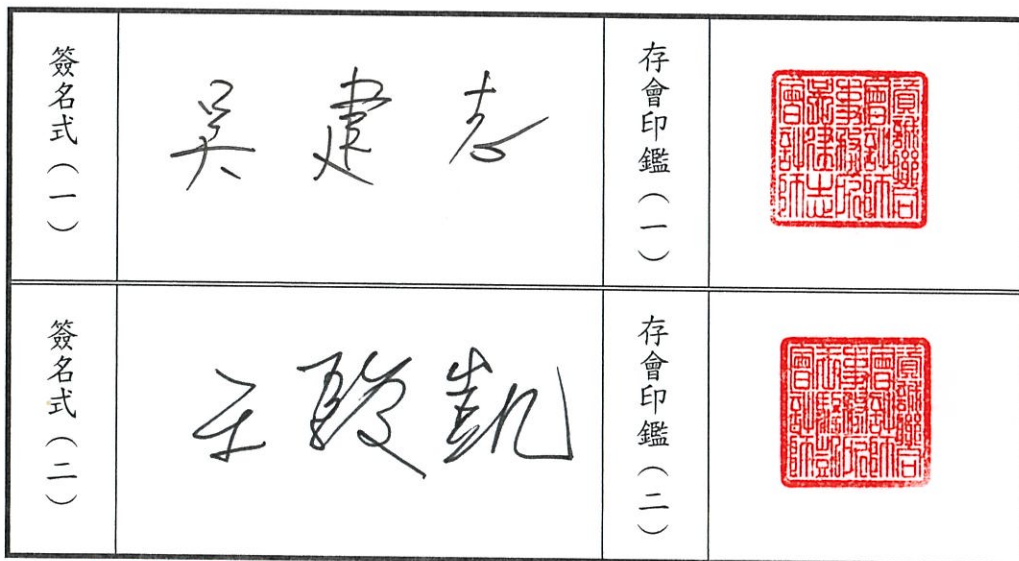 簽名式（一）
吳建志
存會印鑑（一）
資誠聯合
會計師
事務所
吳建志
會計師
簽名式（二）
王駿凱
存會印鑑（二）
資誠聯合
會計師
事務所
王駿凱
會計師